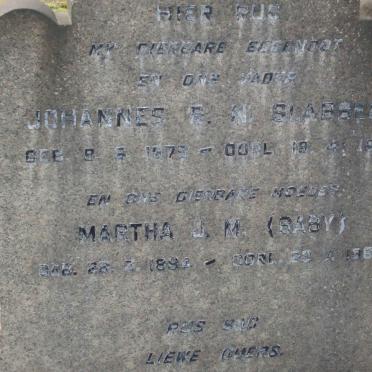 HIER RUS
MY DIERBARE EGGENOOT
EN ONS VADER
JOHANNES
GEB. 9. 1879 – OORL. 19.
EN ONS DIERBARE MOEDER
MARTHA J. M. (BABY)
GEB. 1894 – OORL.
RUS SAG
LIEWE OUERS.